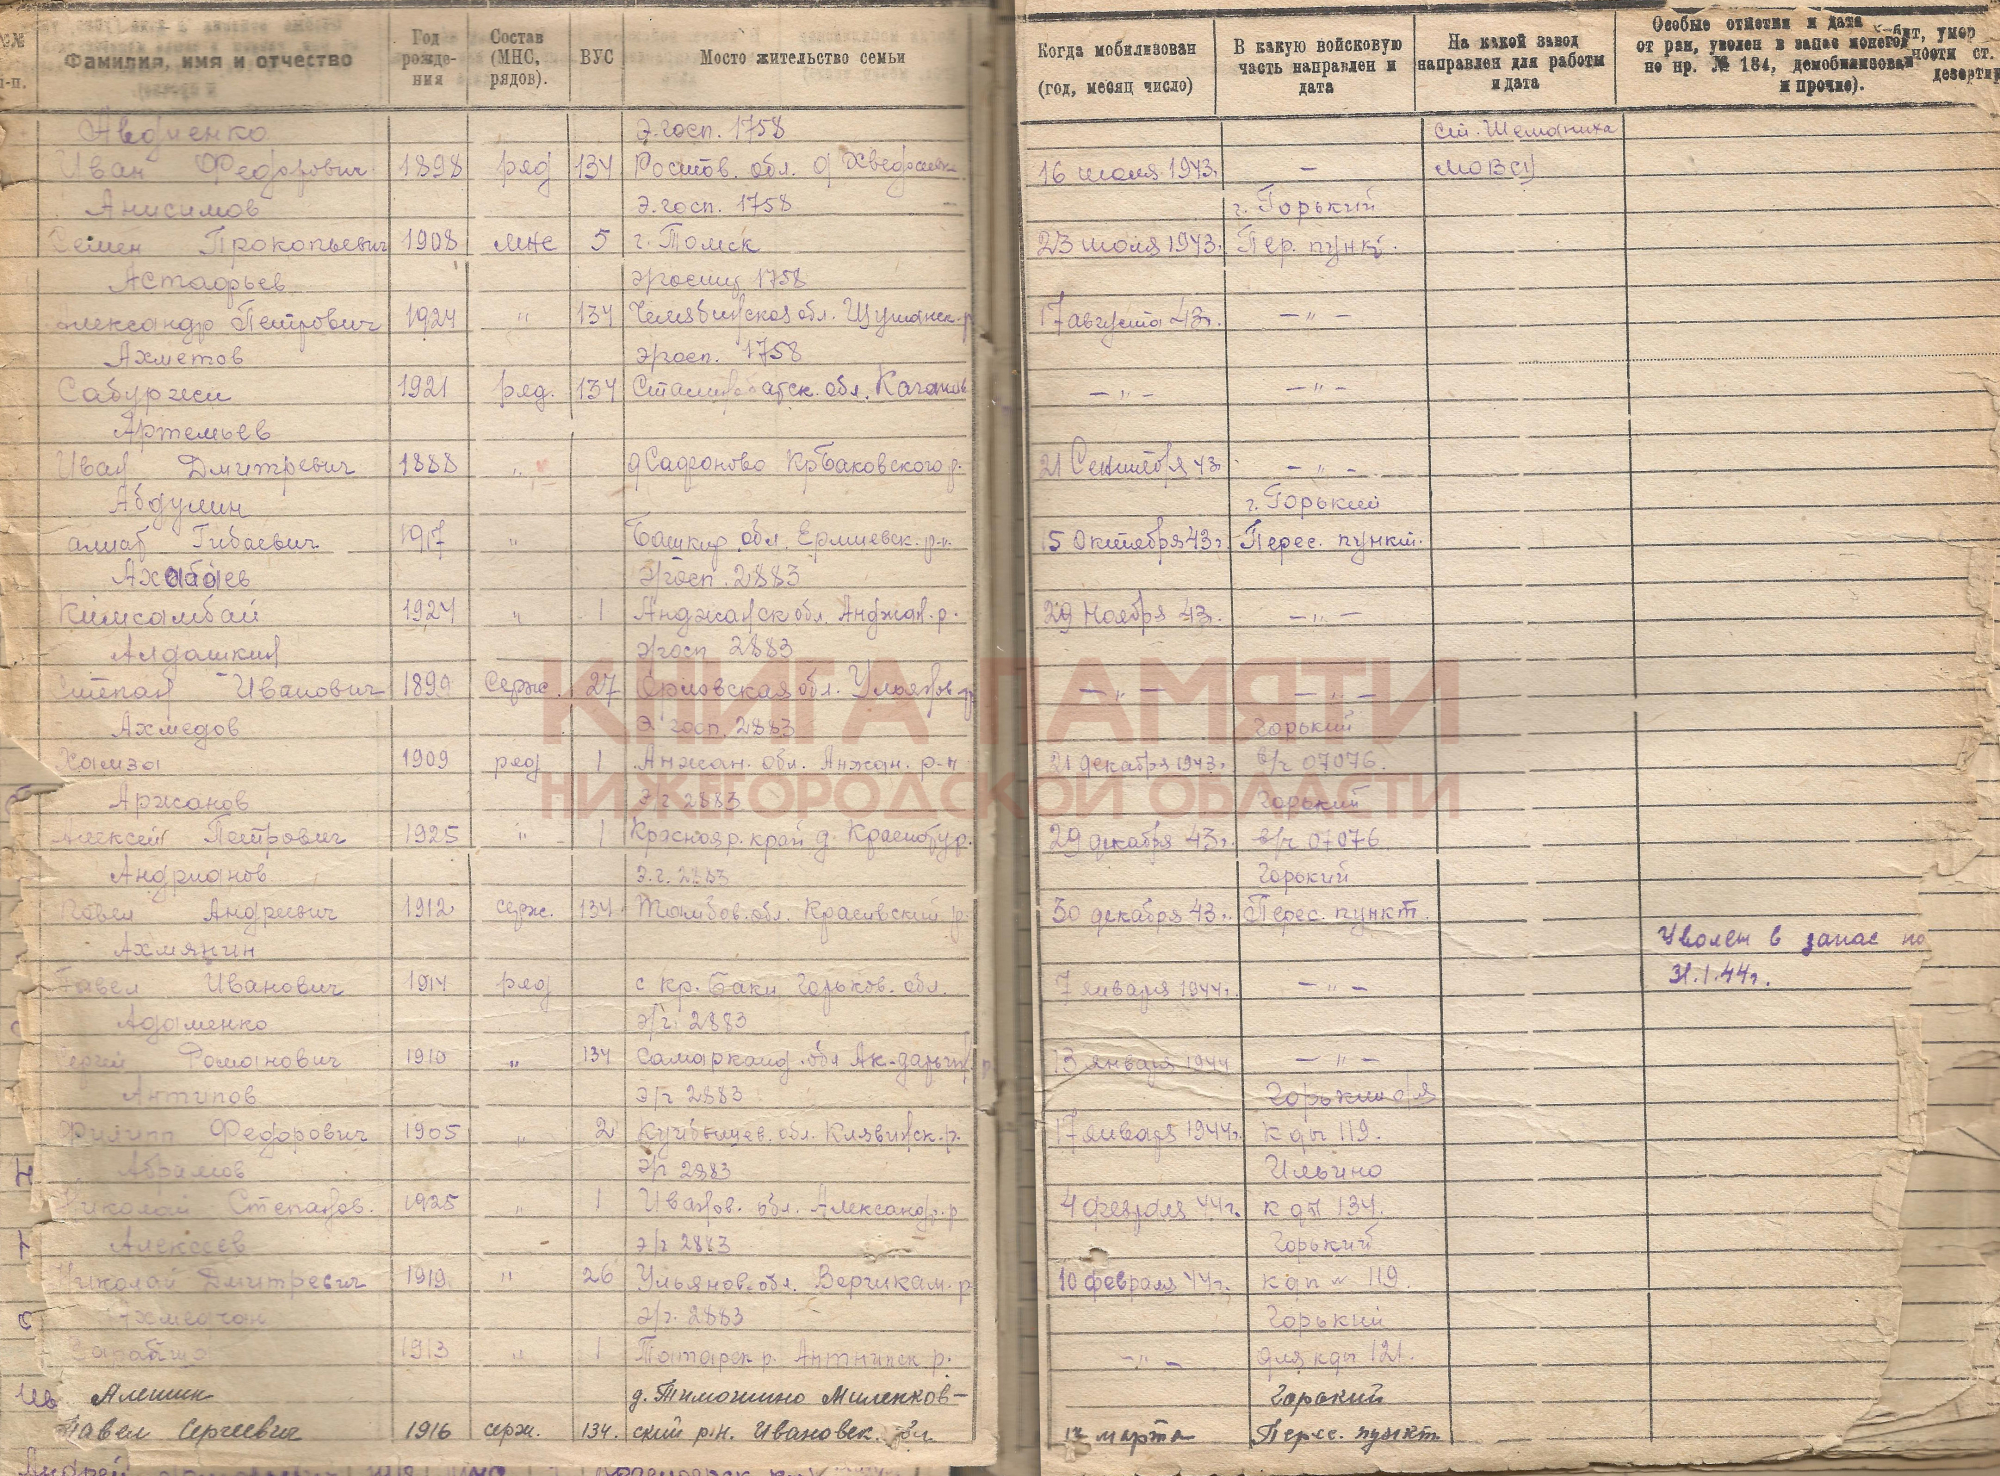 №№ п-п. Фамилия, имя и отчество Год рожде- ния Состав (МНС, рядов). ВУС Мосто жительство семьи Когда мобилизован (год, месяц число) В какую войсковую часть направлен и дата На какой завод направлен для работы и дата Особые отметки и дата
от ран, уволен в запас
по пр. № 184, демобилизован
и прочие).
Авдиенко Э.госп. 1758 ст. Шеманиха
Иван Федорович 1898 ряд 134 Ростов. обл. 16 июля 1943г. — МОВСУ
Анисимов Э.госп. 1758 г. Горький
Семен Прокопьевич 1908 мнс 5 г. Томск 23 июля 1943г. Пер. пункт.
Астафьев Эгоспит 1758
Александр Петрович 1924 " 134 Челябинская обл. 17 августа 43г. — " —
Ахметов Э/госп. 1758
1921 ряд. 134 обл. — " — — " —
Артемьев
Иван Дмитревич 1888 " д Сафроново Кр Баковского р. 21 Сентября 43г. — " —
Абдулин г. Горький
Гибаевич 1917 " Башкир. обл. Ермиевск. р-н. 15 Октября 43г. Перес. пункт.
Ахабаев Э/госп. 2883
Кимсамбай 1924 " 1 Анджанск обл. Анджан. р. 29 Ноября 43г. — " —
Алдашкин Э/госп 2883
Степан Иванович 1899 Серж. 27 Орловская обл. Ульянов. р — " — — " —
Ахмедов Э госп. 2883 Горький
Хамза 1909 ряд 1 Анжан. обл. Анжан. р-н 21 декабря 1943г. в/ч 07076.
Аржанов Э/г 2883 Горький
Алексей Петрович 1925 " 1 Краснояр. край д. 29 декабря 43г. в/ч 07076.
Андрианов Э.г. 2883 Горький
Павел Андреевич 1912 серж. 134 Тамбов. обл. Красивский р. 30 декабря 43г. Перес. пункт.
Ахмянин Уволен в запас по
Павел Иванович 1914 ряд с кр. Баки Горьков. обл. 7 января 1944г. — " — 31.1.44г.
Адаменко Э/г. 2883
Сергей Романович 1910 " 134 Самарканд. обл 13 января 1944 — " —
Антипов Э/г 2883 Горький для
Филипп Федорович 1905 " 2 Куйбышев. обл. Клявинск. р. 17 января 1944г. кдп 119.
Абрамов Э/г 2883 Ильино
Николай Степанов. 1925 " 1 Иванов. обл. Александр. р 4 февраля 44г. кдп 134.
Алексеев Э/г 2883 Горький
Николай Дмитревич 1919 " 26 Ульянов. обл. р. 10 февраля 44г. кдп 119.
Э/г. 2883 Горький
1913 " 1 Татарск р. Антнинск р. — " — для кдп 121.
Алешин д. Тимошино Миленков- Горький
Павел Сергеевич 1916 серж. 134. ский р-н. Ивановск. обл 12 марта Перес. пункт
КНИГА ПАМЯТИ
НИЖЕГОРОДСКОЙ ОБЛАСТИ